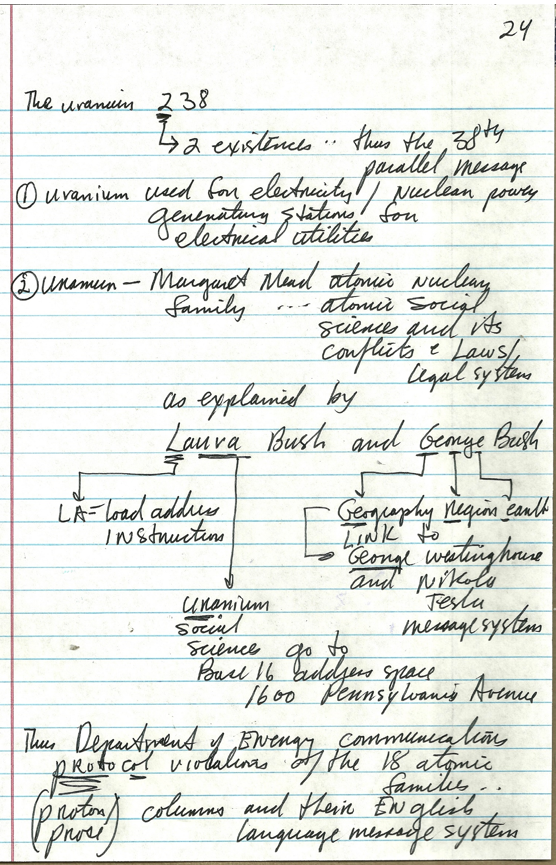 24
The uranium 238
2 existences .. thus the 38th
parallel message
① Uranium used for electricity / Nuclear power
generating stations for
electrical utilities
② Uranium — Margaret Mead atomic nuclear
family .... atomic social
sciences and its
conflicts & Laws/
legal system
as explained by
Laura Bush and George Bush
LA = load address
INStruction
Geography Region earth
LINK to
George Westinghouse
and Nikola
Tesla
message system
Uranium
Social
Sciences go to
Base 16 address space
1600 Pennsylvania Avenue
Thus Department of ENergy communications
protocol violations of the 18 atomic
families ..
(proton/ columns and their ENglish
prose) language message system